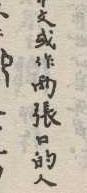 文或作兩張口的人